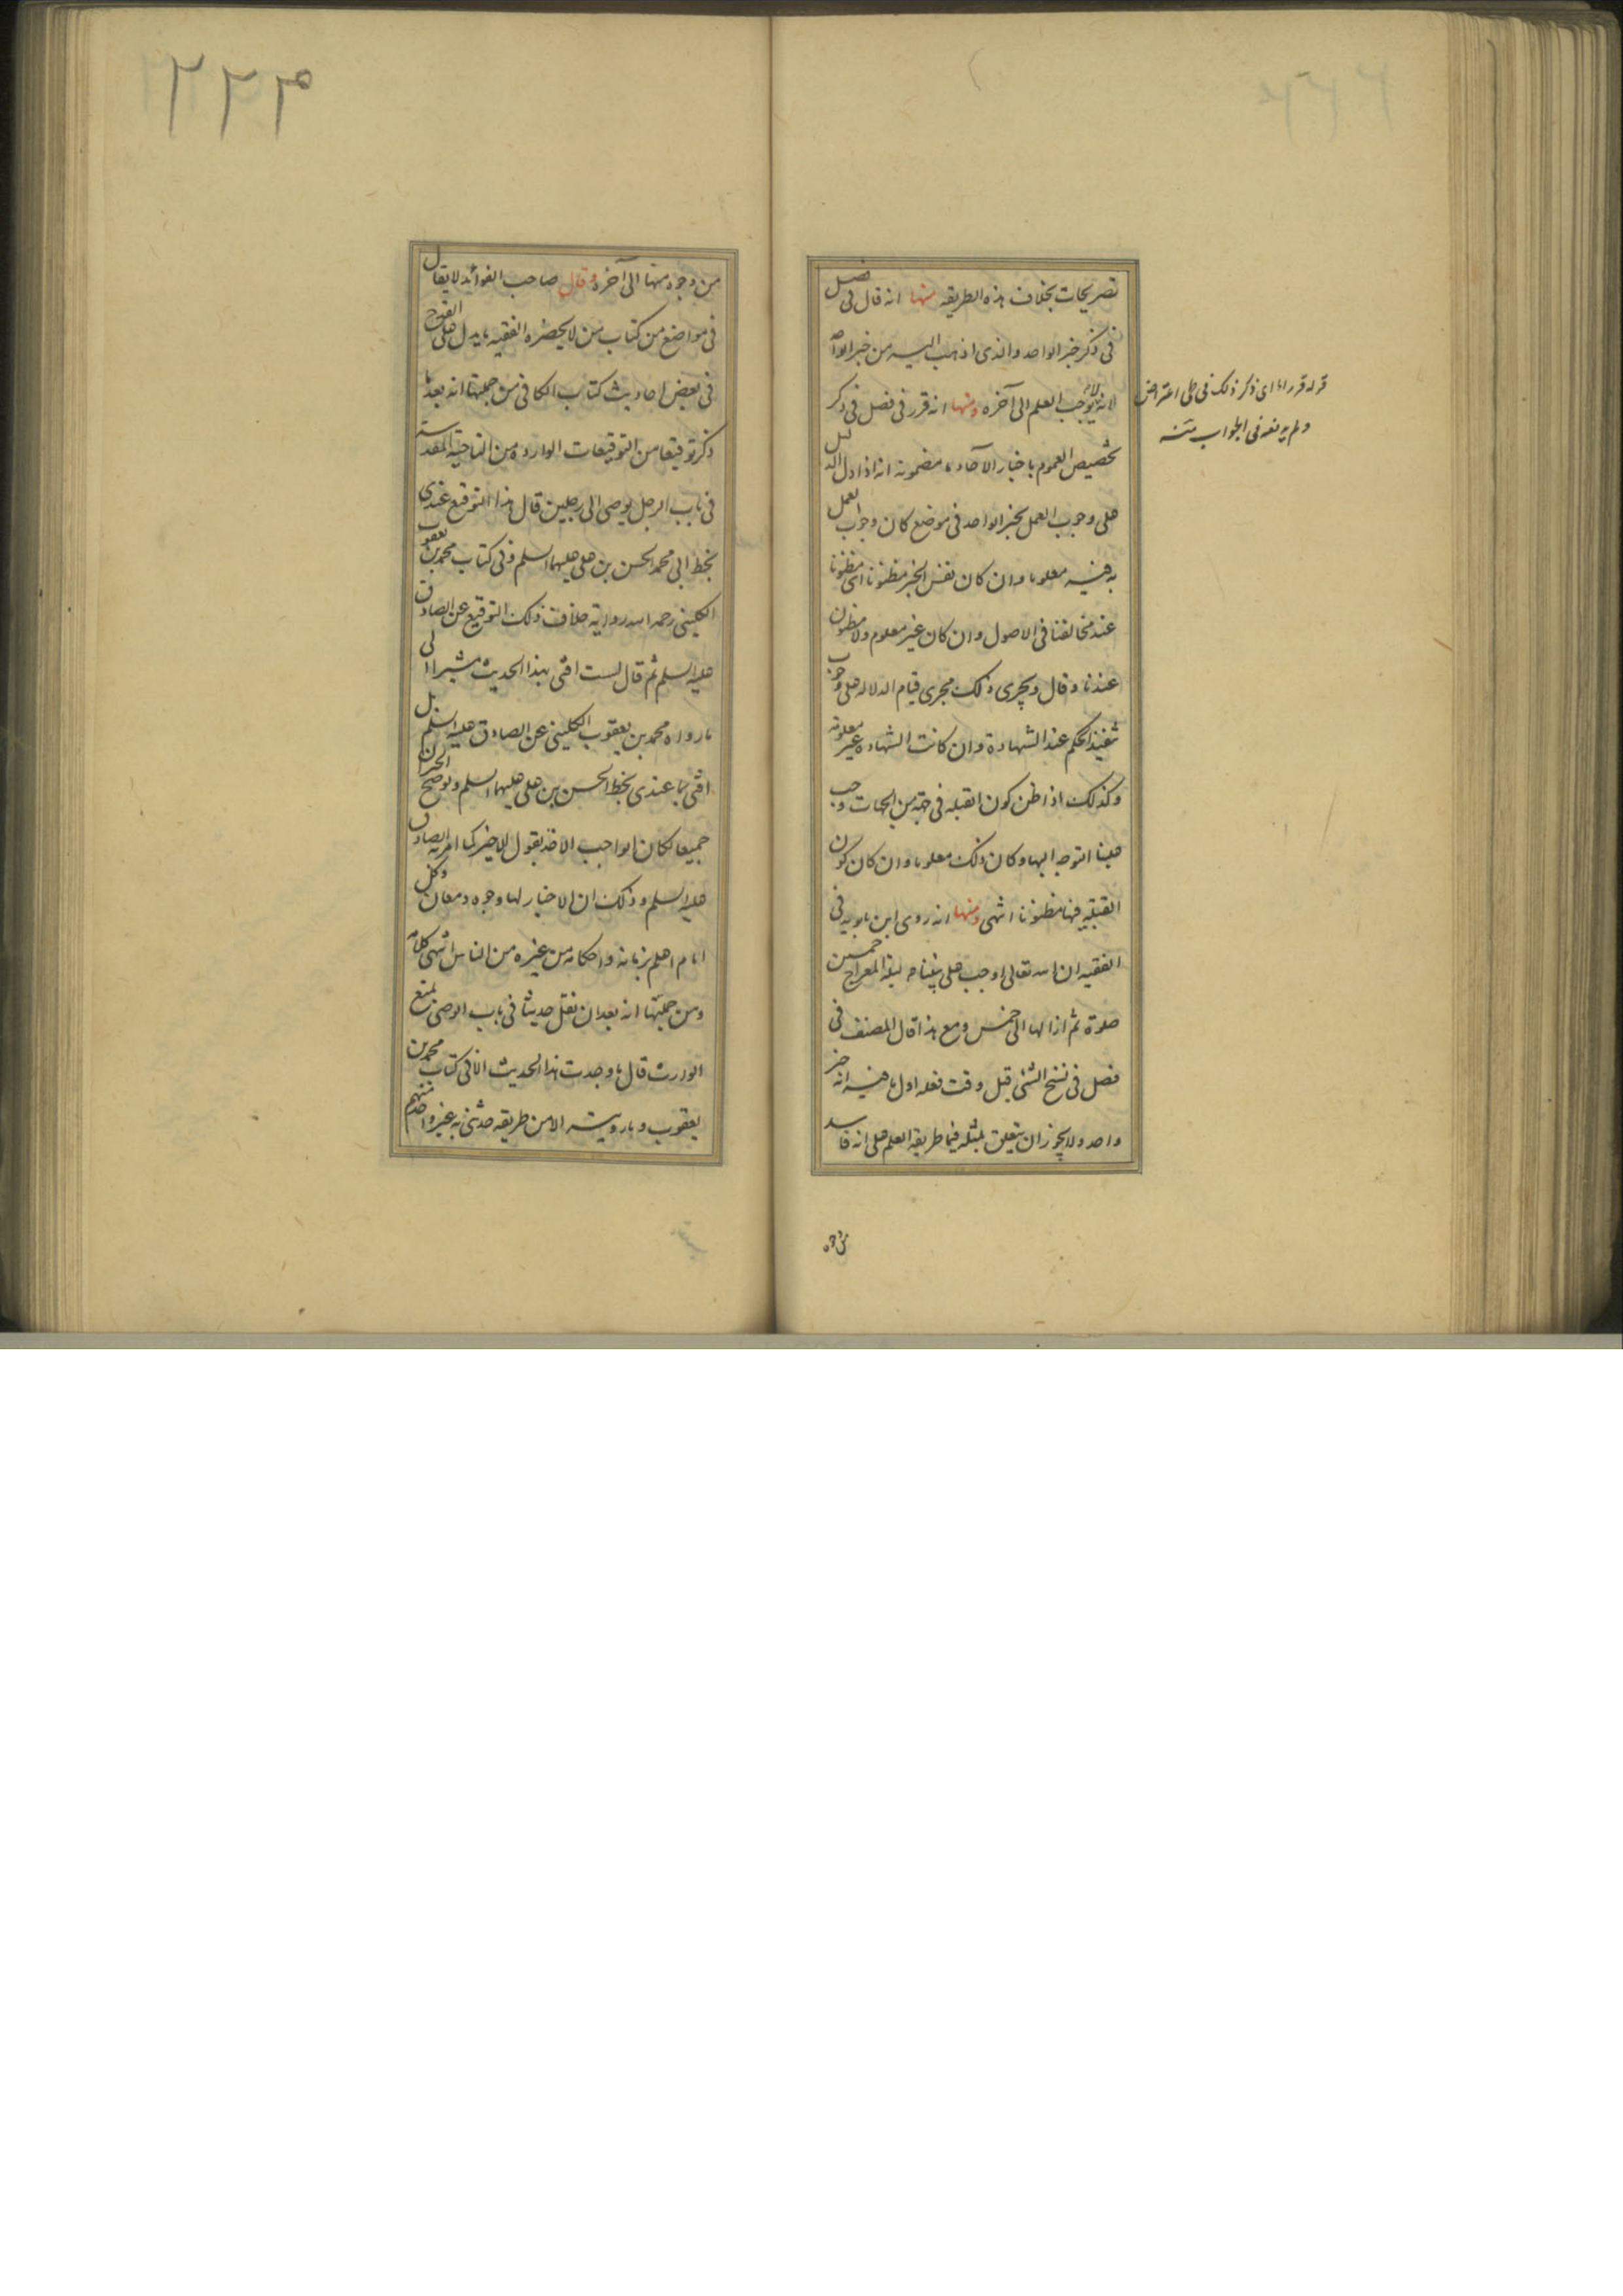 تصريحات بخلاف هذه الطريقة منها انه قال فى فصل
فى ذكر خبر الواحد والذى اذهب اليه من خبر الواحد
لانه لا يوجب العلم الى آخره ومنها انه قرر فى فصل فى ذكر
تخصيص العموم باخبار الآحاد ما مضمونه انه اذا دل الدليل
على وجوب العمل بخبر الواحد فى موضع كان وجوب العمل
به فيه معلوما وان كان نفس الخبر مظنونا اى مظنونا
عند مخالفنا فى الاصول وان كان غير معلوم ولا مظنون
عندنا وقال ويجرى ذلك مجرى قيام الدلالة على وجوب
تنفيذ الحكم عند الشهادة وان كانت الشهادة غير معلومة
وكذلك اذا ظن كون القبلة فى جهة من الجهات وجب
علينا التوجه اليها وكان ذلك معلوما وان كان كون
القبلة فيها مظنونا انتهى ومنها انه روى ابن بابويه فى
الفقيه ان الله تعالى اوجب على نبينا ص ليلة المعراج خمسين
صلوة ثم ازالها الى خمس ومع هذا قال المصنف فى
فصل فى نسخ الشئ قبل وقت فعله اول ما فيه انه خبر
واحد ولا يجوز ان يتعلق بمثله فيما طريقه العلم على انه فاسد
من وجوه
قوله قرر اما اى ذكر ذلك فى طى اعتراض
ولم يدفعه فى الجواب منه
٢٢٣
من وجوه منها الى آخره وقال صاحب الفوائد لا يقال
فى مواضع من كتاب من لا يحضره الفقيه ما يدل على القدح
فى بعض احاديث كتاب الكافى من جملتها انه بعد ما
ذكر توقيعا من التوقيعات الواردة من الناحية المقدسة
فى باب الرجل يوصى الى رجلين قال هذا التوقيع عندى
بخط ابى محمد الحسن بن على عليهما السلم وفى كتاب محمد بن يعقوب
الكلينى رحمه الله رواية خلاف ذلك التوقيع عن الصادق
عليه السلم ثم قال لست افتى بهذا الحديث مشيرا الى
ما رواه محمد بن يعقوب الكلينى عن الصادق عليه السلم بل
افتى بما عندى بخط الحسن بن على عليهما السلم ولو صح الخبران
جميعا لكان الواجب الاخذ بقول الاخير كما امر به الصادق
عليه السلم وذلك ان الاخبار لها وجوه ومعان وكل
امام اعلم بزمانه واحكامه من غيره من الناس انتهى كلامه
ومن جملتها انه بعد ان نقل حديثا فى باب الوصى يمنع
الوارث قال ما وجدت هذا الحديث الا فى كتاب محمد بن
يعقوب وما رويته الا من طريقه حدثنى به غير واحد منهم